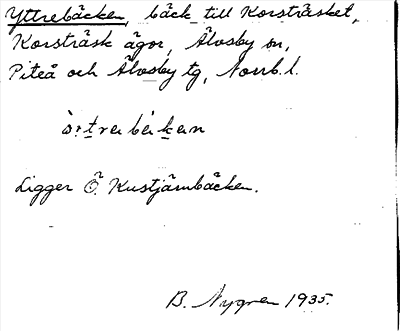 Yttrebäcken, bäck till Korsträsket,
Korsträsk ägor, Älvsby sn,
Piteå och Älvsby tg, Norrb. l.
Ligger Ö. Kustjärnbäcken.
B. Nygren 1935.